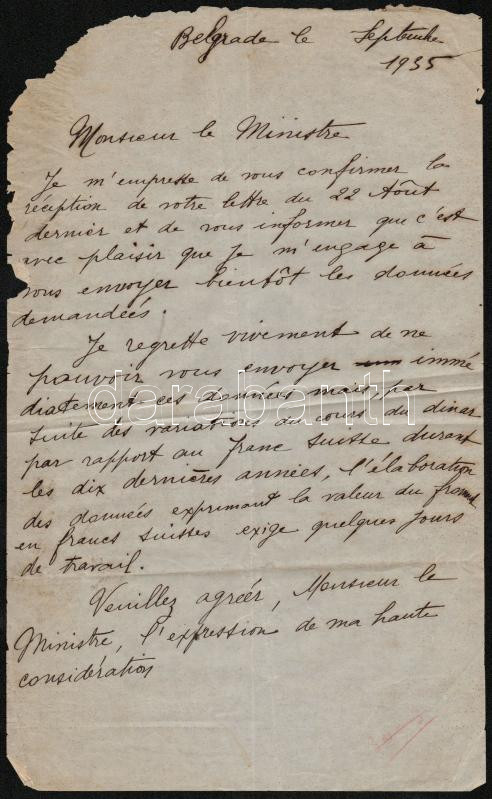 Belgrade le Septembre
1935
Monsieur le Ministre
Je m'empresse de vous confirmer la
réception de votre lettre du 22 Août
dernier et de vous informer que c'est
avec plaisir que je m'engage à
vous envoyer bientôt les données
demandées.
Je regrette vivement de ne
pouvoir vous envoyer immé
diatement ces données mais, par
suite des variations du cours du dinar
par rapport au franc suisse durant
les dix dernières années, l'élaboration
des données exprimant la valeur du
en francs suisses exige quelques jours
de travail.
Veuillez agréér, Monsieur le
Ministre, l'expression de ma haute
considération
darabanth